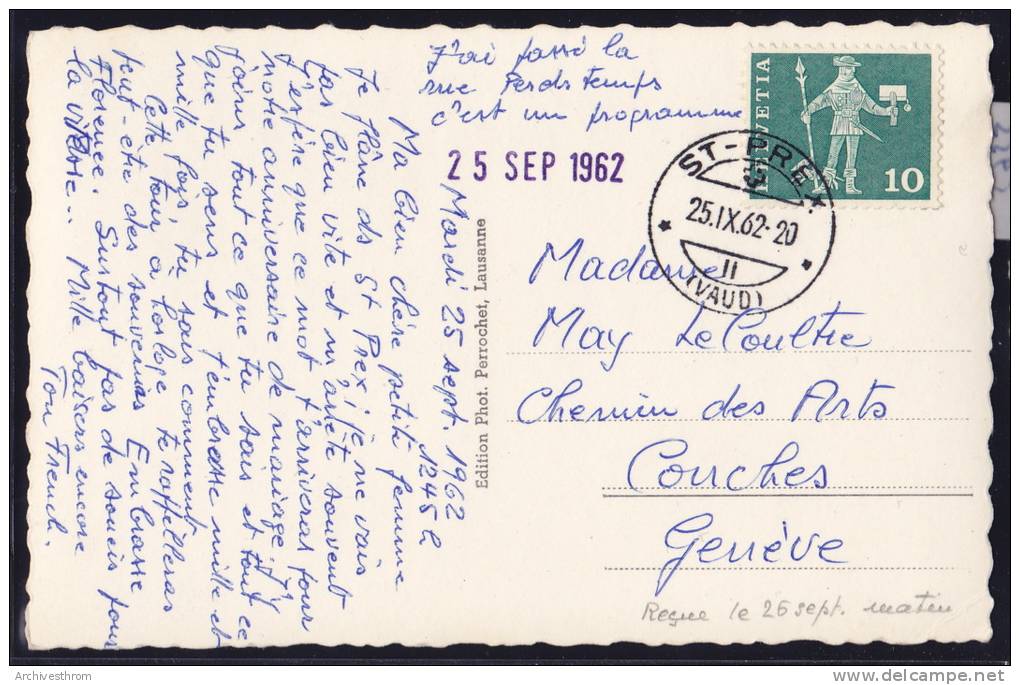 J'ai passé la
rue Perds temps
c'est un programme
HELVETIA
10
25 SEP 1962
ST-PREX
25.IX.62-20
II
(VAUD)
Mardi 25 sept. 1962
1245 h
Ma bien chère petite femme
Je flâne ds St Prex, je ne vais
pas bien vite et m'arrête souvent
J'espère que ce mot t'arrivera pour
notre anniversaire de mariage. J'y
joins tout ce que tu sais et tout ce
que tu sens et t'embrasse mille et
mille fois, tu sais comment
Cette tour, à horloge te rappellera
peut-être des souvenirs. Embrasse
Florence. Surtout pas de soucis pour
la vitesse... Mille baisers encore
Ton French.
Edition Phot. Perrochet, Lausanne
Madame
May LeCoultre
Chemin des Arts
Conches
Genève
Reçue le 26 sept. matin
Archivesthrom
j'ai vendu sur delcampe